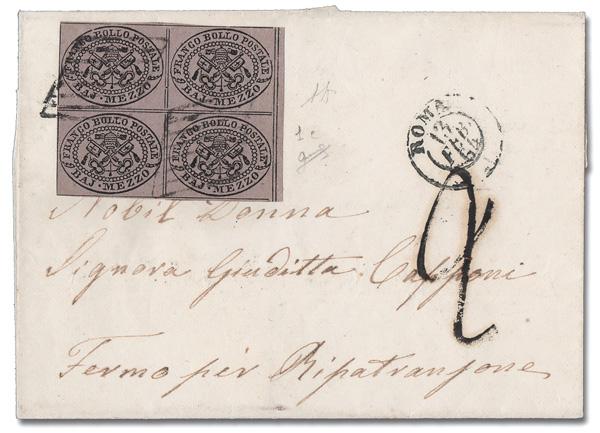 FRANCO BOLLO POSTALE
BAJ·MEZZO
FRANCO BOLLO POSTALE
BAJ·MEZZO
FRANCO BOLLO POSTALE
BAJ·MEZZO
FRANCO BOLLO POSTALE
BAJ·MEZZO
ROMA
13
FEB
2
Nobil Donna
Signora Giuditta Capponi
Fermo per Ripatransone